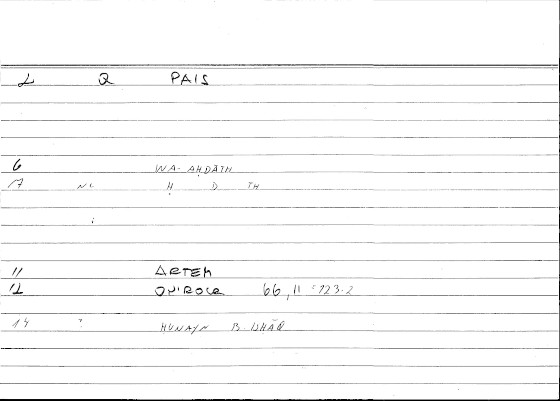 L Q PAIS
6 WA-AḤDĀTH
17 NC Ḥ D TH
11 ARTEM
12 ONIROCR 66, 11
14 ? HUNAYN B. ISHĀQ